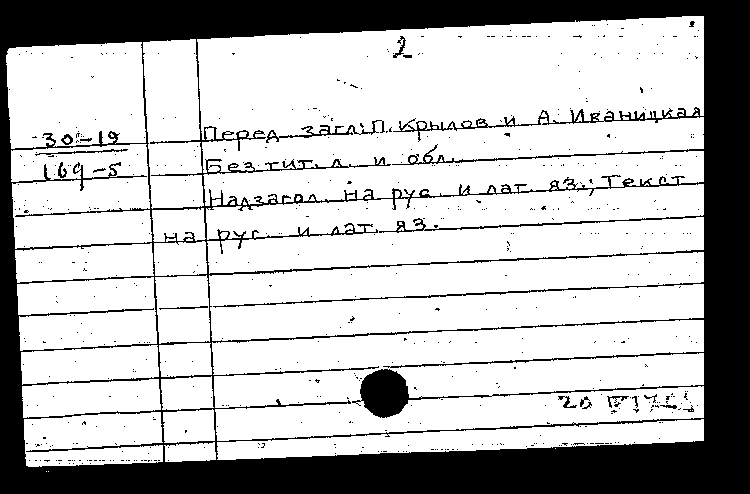 2
30-19
169-5
Перед загл: П. Крылов и А. Иваницкая
Без тит. л. и обл.
Надзагол. на рус. и лат. яз.; Текст
на рус. и лат. яз.
20